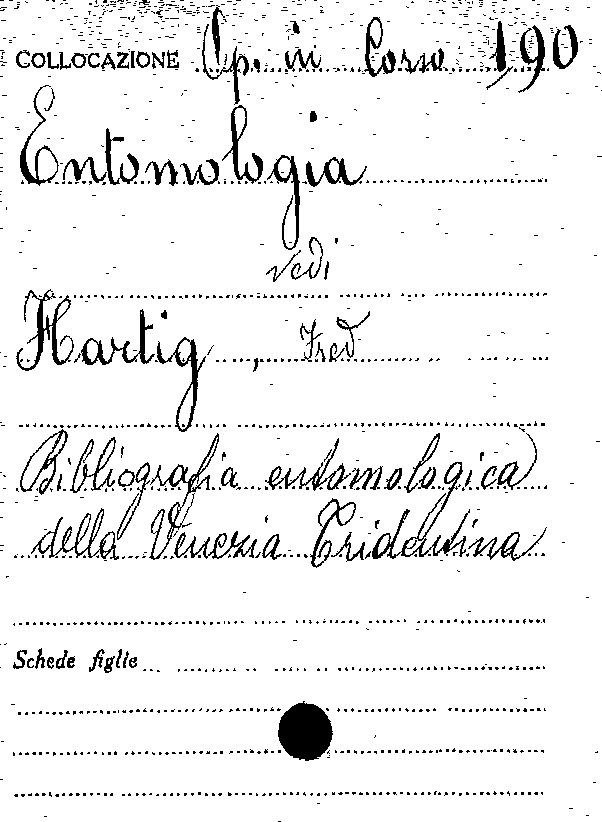 COLLOCAZIONE Op. in Corso 190
Entomologia
vedi
Hartig, Fred
Bibliografia entomologica
della Venezia Tridentina
Schede figlie